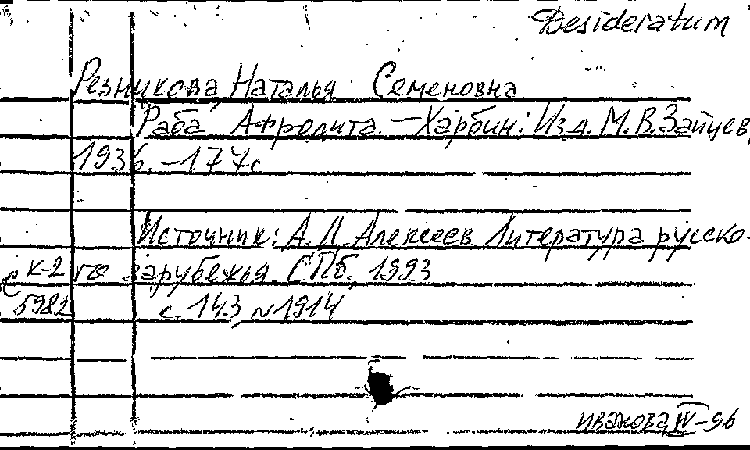 Desideratum
Резникова, Наталья Семеновна
Раба Афродита. – Харбин: Изд. М.В.Зайцев,
1936. – 177с
Источник: А.Д. Алексеев Литература русско-
го зарубежья. СПб., 1993
с. 143, №1914
С к-2
5982
иванова IV-96